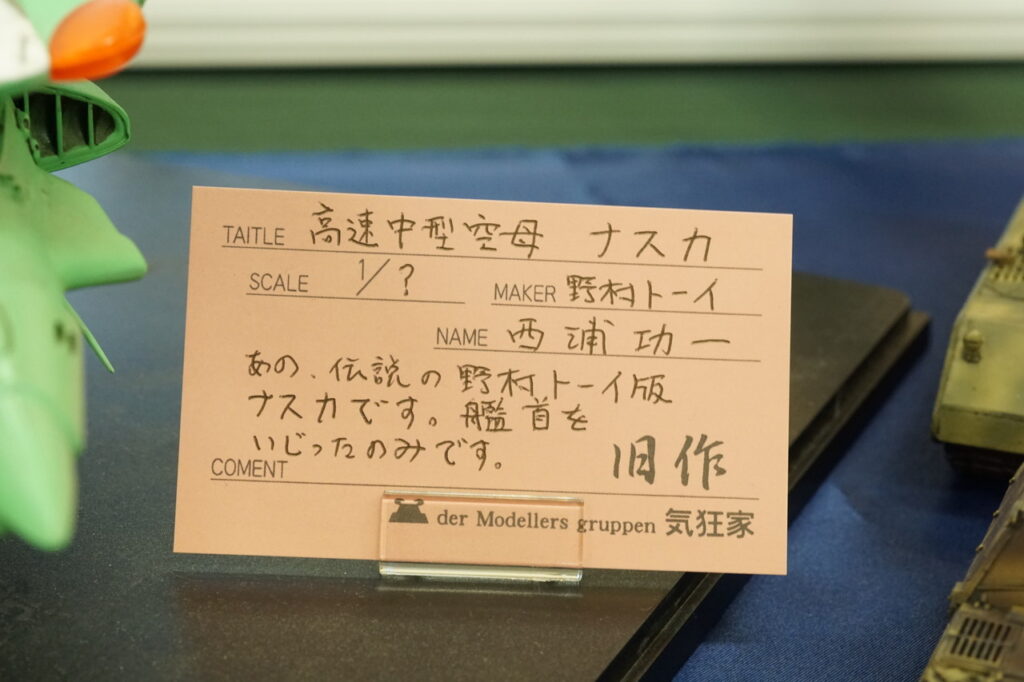 TAITLE 高速中型空母 ナスカ
SCALE 1/? MAKER 野村トーイ
NAME 西浦功一
あの、伝説の野村トーイ版
ナスカです。艦首を
いじったのみです。
COMENT 旧作
der Modellers gruppen 気狂家